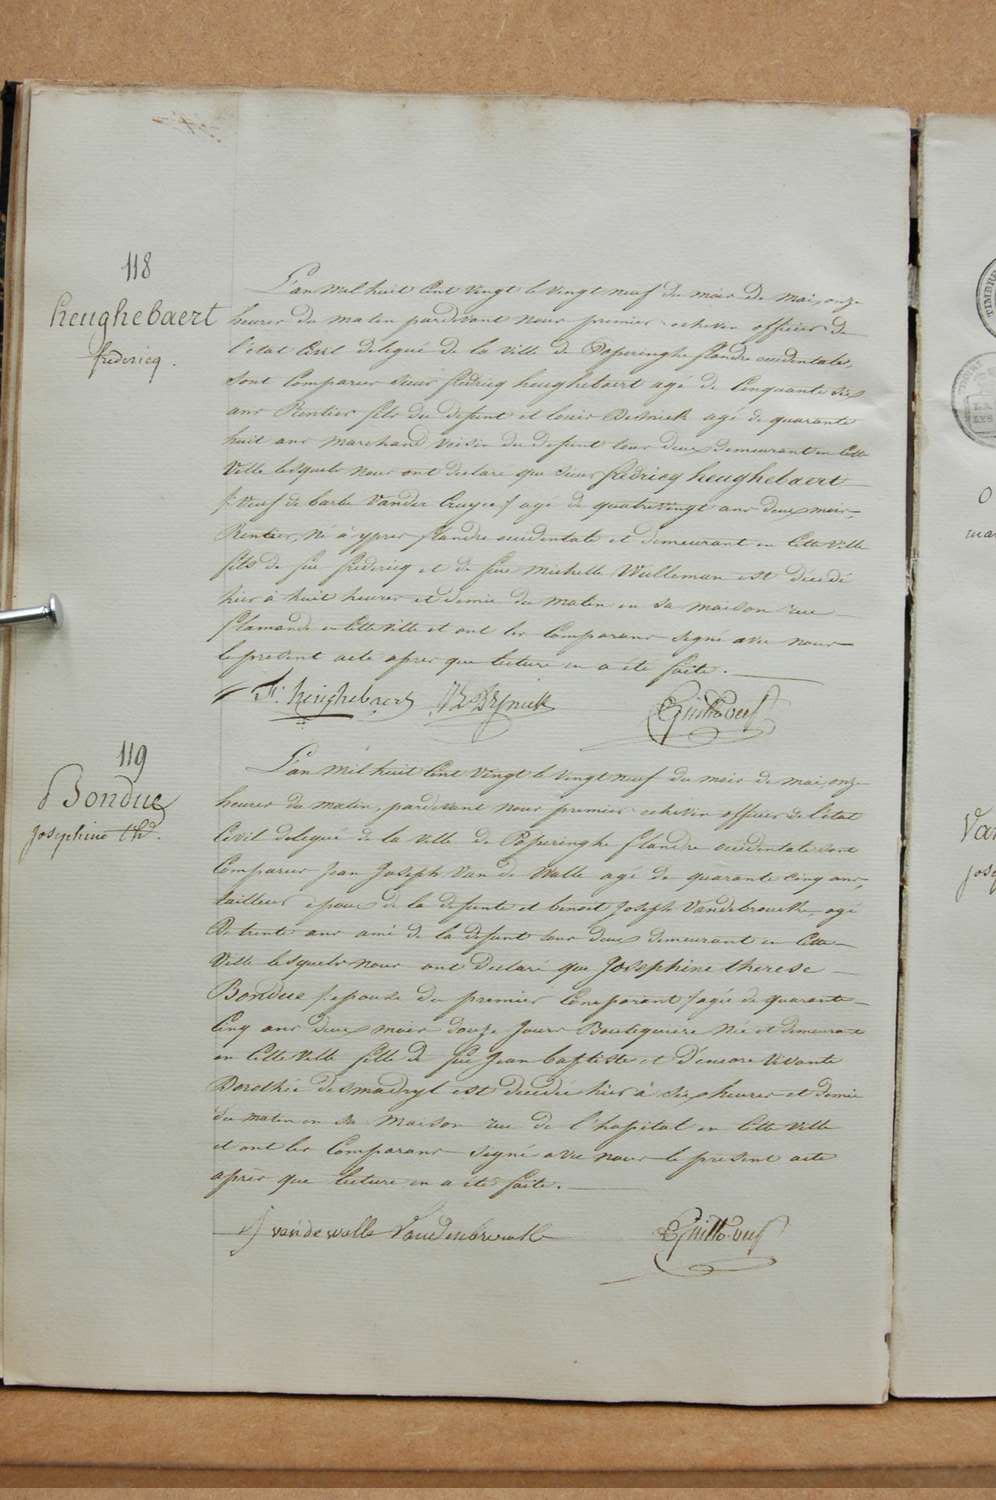 118
heughebaert
fredericq.
L'an Mil huit Cent Vingt le Vingt neuf du mois de mai, onze
heures du matin pardevant nous premier echevin officier de
l'état Civil delegué de la ville de Poperinghe flandre occidentale,
sont Comparus Sieur fredricq heughebaert agé de Cinquante six
ans Rentier fils du defunt et louis Desnick agé de quarante
huit ans marchand voisin du defunt tous deux demeurant en Cette
Ville lesquels nous ont declaré que Sieur fredricq heughebaert
/: Veuf de barbe Vander Cruyce / agé de quatrevingt ans deux mois,
Rentier, Né à ypres flandre occidentale et demeurant en Cette Ville
fils de feu fredericq et de feue Michelle Wulleman est décédé
hier à huit heures et demie du matin en sa maison rue
flamande en Cette Ville et ont les Comparans signé avec nous
le présent acte apres que lecture en a été faite.
Fr. heughebaert
119
Bonduc
Josephine thd.
L'an Mil huit Cent Vingt le Vingt neuf du mois de mai, onze
heures du matin, pardevant nous premier echevin officier de l'état
Civil delegué de la Ville de Poperinghe flandre occidentale sont
Comparus Jean Joseph Van de Walle agé de quarante Cinq ans,
tailleur epoux de la defunte et benoit Joseph Vandebrouck agé
De trente ans ami de la defunt tous deux demeurant en Cette
Ville lesquels nous ont declaré que Josephine therese
Bonduc / epouse du premier Comparant / agée de quarante
Cinq ans deux mois douze Jours Boutiquiere Née et demeurant
en Cette Ville fille de feu Jean baptiste et d'encore Vivante
Dorothée desmadryl est decedée hier à six heures et demie
du matin en sa Maison rue de l'hopital en Cette Ville
et ont les Comparans signé avec nous le present acte
après que lecture en a été faite.
J vandewalle Vandenbrouck